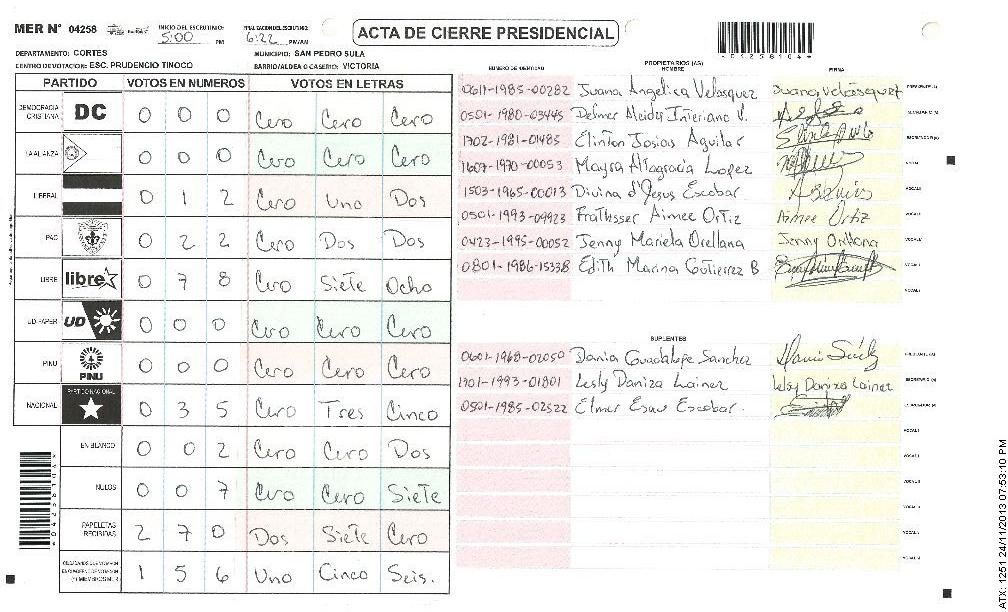 MER Nº 04258
INICIO DEL ESCRUTINIO: 5:00 PM
FINALIZACION DEL ESCRUTINIO: 6:22 PM/AM
ACTA DE CIERRE PRESIDENCIAL
*01258104*
DEPARTAMENTO: CORTES
MUNICIPIO: SAN PEDRO SULA
CENTRO DE VOTACION: ESC. PRUDENCIO TINOCO
BARRIO/ALDEA O CASERIO: VICTORIA
PARTIDO VOTOS EN NUMEROS VOTOS EN LETRAS
DEMOCRACIA CRISTIANA DC 0 0 0 Cero Cero Cero
LA ALIANZA 0 0 0 Cero Cero Cero
LIBERAL 0 1 2 Cero Uno Dos
PAC 0 2 2 Cero Dos Dos
LIBRE libre 0 7 8 Cero Siete Ocho
UD FAPER UD 0 0 0 Cero Cero Cero
PINU PINU 0 0 0 Cero Cero Cero
NACIONAL PARTIDO NACIONAL 0 3 5 Cero Tres Cinco
EN BLANCO 0 0 2 Cero Cero Dos
NULOS 0 0 7 Cero Cero Siete
PAPELETAS RECIBIDAS 2 7 0 Dos Siete Cero
1 5 6 Uno Cinco Seis.
NUMERO DE IDENTIDAD PROPIETARIOS (AS) NOMBRE FIRMA
0611-1985-00282 Juana Angelica Velasquez Juana Velasquez PRESIDENTE (A)
0501-1980-03445 Delmer Aleidy Interiano V.
1702-1981-01485 Clinton Josias Aguilar
1607-1970-00053 Mayra Altagracia Lopez
1503-1965-00013 Divina d'Jesus Escobar
0501-1993-09923 Aimee Ortiz Aimee Ortiz
0423-1995-00052 Jenny Mariela Orellana Jenny Orellana
0801-1986-15338 Edith Marina Gutierrez B
SUPLENTES
0601-1968-02050 Dania Guadalupe Sanchez
1701-1993-01801 Lesly Daniza Lainez Lesly Daniza Lainez
0501-1985-02522 Elmer Esau Escobar.
ATX: 1251 24/11/2013 07:53:10 PM